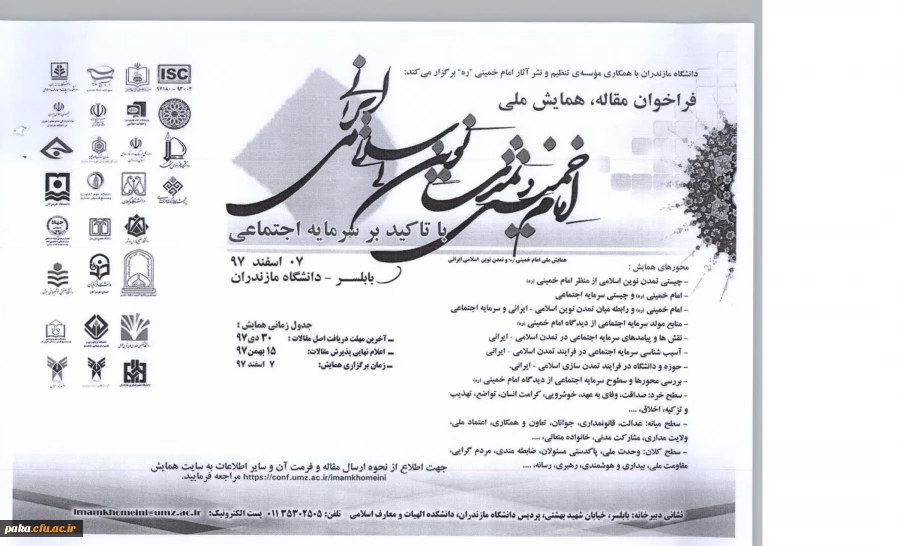 دانشگاه مازندران با همکاری مؤسسه‌ی تنظیم و نشر آثار امام خمینی "ره" برگزار می‌کند:
فراخوان مقاله، همایش ملی
امام خمینی و تمدن نوین اسلامی ایرانی
با تاکید بر سرمایه اجتماعی
همایش ملی امام خمینی (ره) و تمدن نوین اسلامی ایرانی
۰۷ اسفند ۹۷
بابلسر - دانشگاه مازندران
محورهای همایش:
- چیستی تمدن نوین اسلامی از منظر امام خمینی (ره)
- امام خمینی (ره) و چیستی سرمایه اجتماعی
- امام خمینی (ره) و رابطه میان تمدن نوین اسلامی - ایرانی و سرمایه اجتماعی
- منابع مولد سرمایه اجتماعی از دیدگاه امام خمینی (ره)
- نقش ها و پیامدهای سرمایه اجتماعی در تمدن اسلامی - ایرانی
- آسیب شناسی سرمایه اجتماعی در فرایند تمدن اسلامی - ایرانی
- حوزه و دانشگاه در فرایند تمدن سازی اسلامی - ایرانی.
- بررسی محورها و سطوح سرمایه اجتماعی از دیدگاه امام خمینی (ره)
- سطح خرد: صداقت، وفای به عهد، خوشرویی، کرامت انسان، تواضع، تهذیب
و تزکیه، اخلاق، ....
- سطح میانه: عدالت، قانونمداری، جوانان، تعاون و همکاری، اعتماد ملی،
ولایت مداری، مشارکت مدنی، خانواده متعالی، ....
- سطح کلان: وحدت ملی، پاکدستی مسئولان، ضابطه مندی، مردم گرایی،
مقاومت ملی، بیداری و هوشمندی، رهبری، رسانه، ....
جدول زمانی همایش:
- آخرین مهلت دریافت اصل مقالات: ۳۰ دی ۹۷
- اعلام نهایی پذیرش مقالات: ۱۵ بهمن ۹۷
- زمان برگزاری همایش: ۷ اسفند ۹۷
ISC
۹۷۱۸۰-۹۳۰۰۲
جهت اطلاع از نحوه ارسال مقاله و فرمت آن و سایر اطلاعات به سایت همایش
https://conf.umz.ac.ir/imamkhomeini مراجعه فرمایید.
نشانی دبیرخانه: بابلسر، خیابان شهید بهشتی، پردیس دانشگاه مازندران، دانشکده الهیات و معارف اسلامی تلفن: ۳۵۳۰۲۵۰۵ ۰۱۱ پست الکترونیک: imamkhomeini@umz.ac.ir
paka.cfu.ac.ir